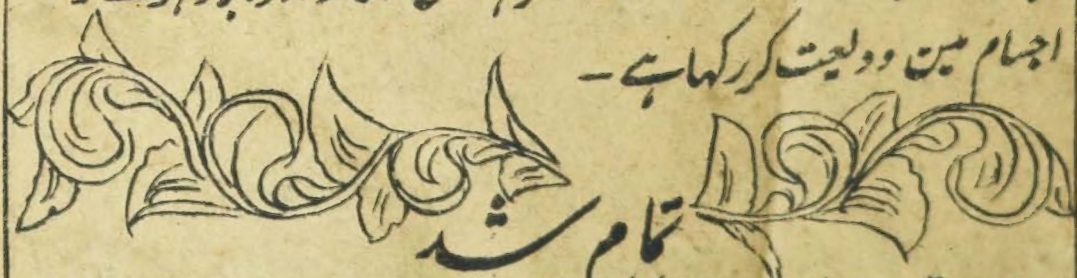 اجسام مین ودیعت کر رکہا ہے ۔
تمام شد